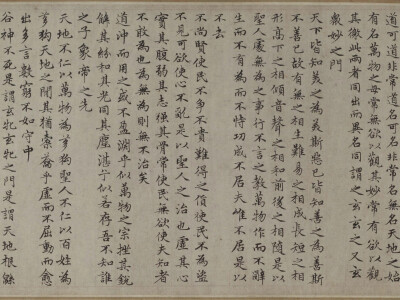 道可道非常道名可名非常名無名天地之始
有名萬物之母常無欲以觀其妙常有欲以觀
其徼此兩者同出而異名同謂之玄玄之又玄
衆妙之門
天下皆知美之為美斯惡已皆知善之為善斯
不善已故有無之相生難易之相成長短之相
形高下之相傾音聲之相和前後之相隨是以
聖人處無為之事行不言之教萬物作而不辭
生而不有為而不恃功成不居夫唯不居是以
不去
不尚賢使民不爭不貴難得之貨使民不為盜
不見可欲使心不亂是以聖人之治也虛其心
實其腹弱其志強其骨常使民無欲使夫知者
不敢為也為無為則無不治矣
道沖而用之或不盈淵乎似萬物之宗挫其銳
解其紛和其光同其塵湛乎似若存吾不知誰
之子象帝之先
天地不仁以萬物為芻狗聖人不仁以百姓為
芻狗天地之間其猶橐籥乎虛而不屈動而愈
出多言數窮不如守中
谷神不死是謂玄牝玄牝之門是謂天地根緜